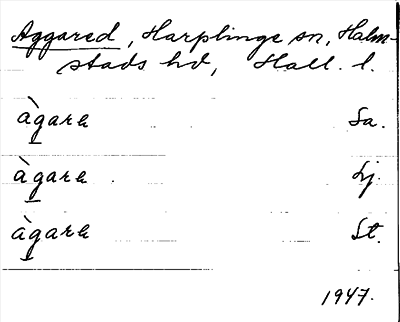 Aggared, Harplinge sn, Halm-
stads hd, Hall. l.
àgara Sa.
àgara Lj.
àgara St.
1947.